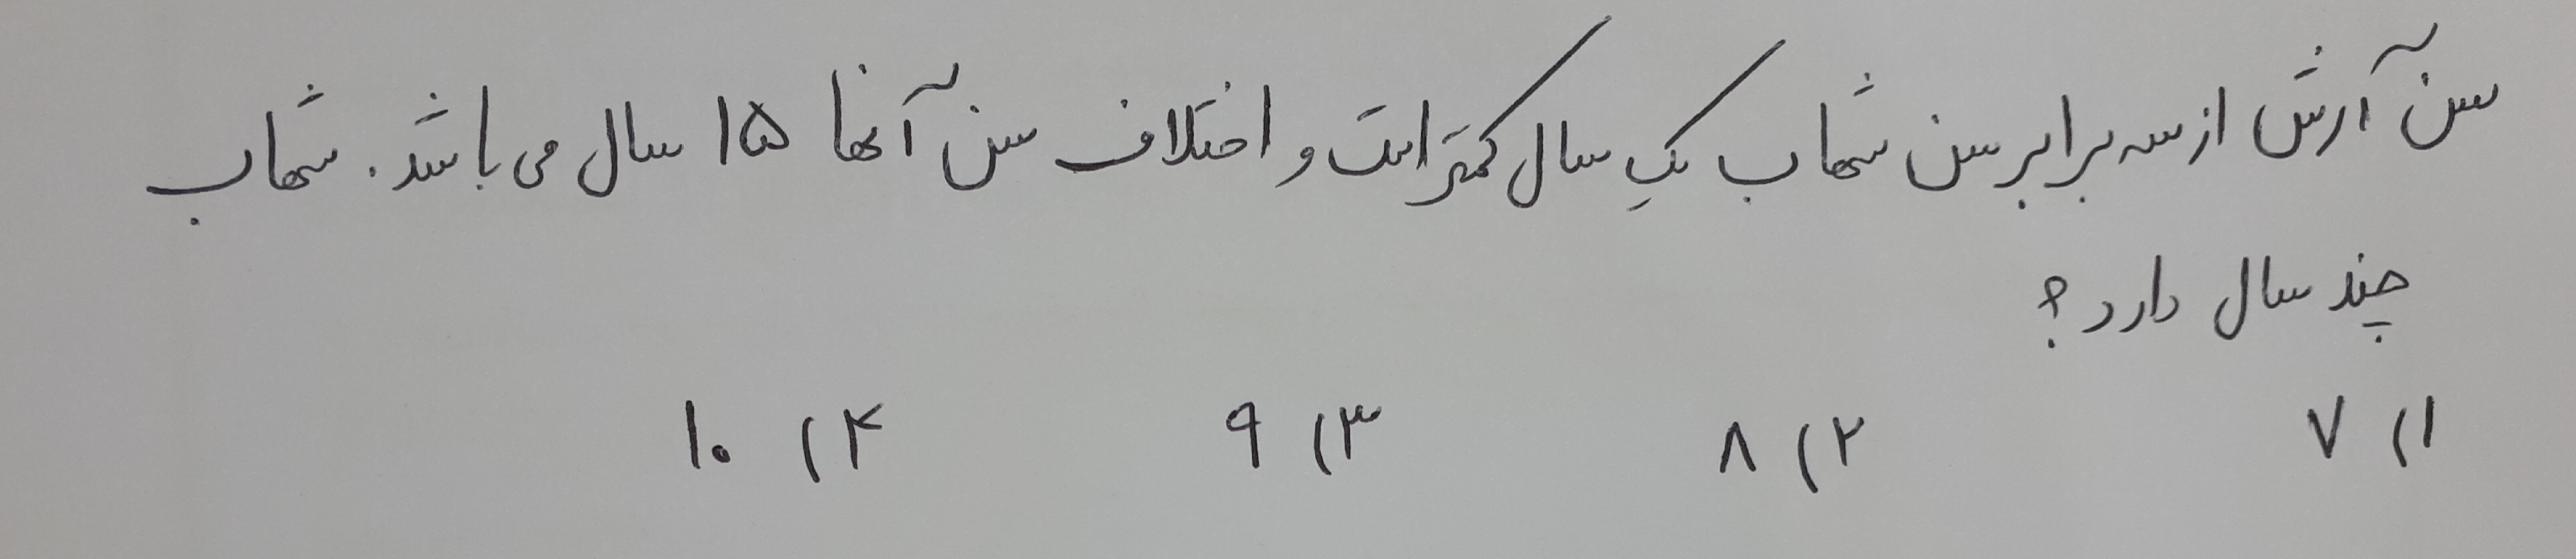 سن آرش از سه برابر سن شهاب یک سال کمتر است و اختلاف سن آنها ۱۵ سال می باشد. شهاب
چند سال دارد؟
۱) ۷ ۲) ۸ ۳) ۹ ۴) ۱۰